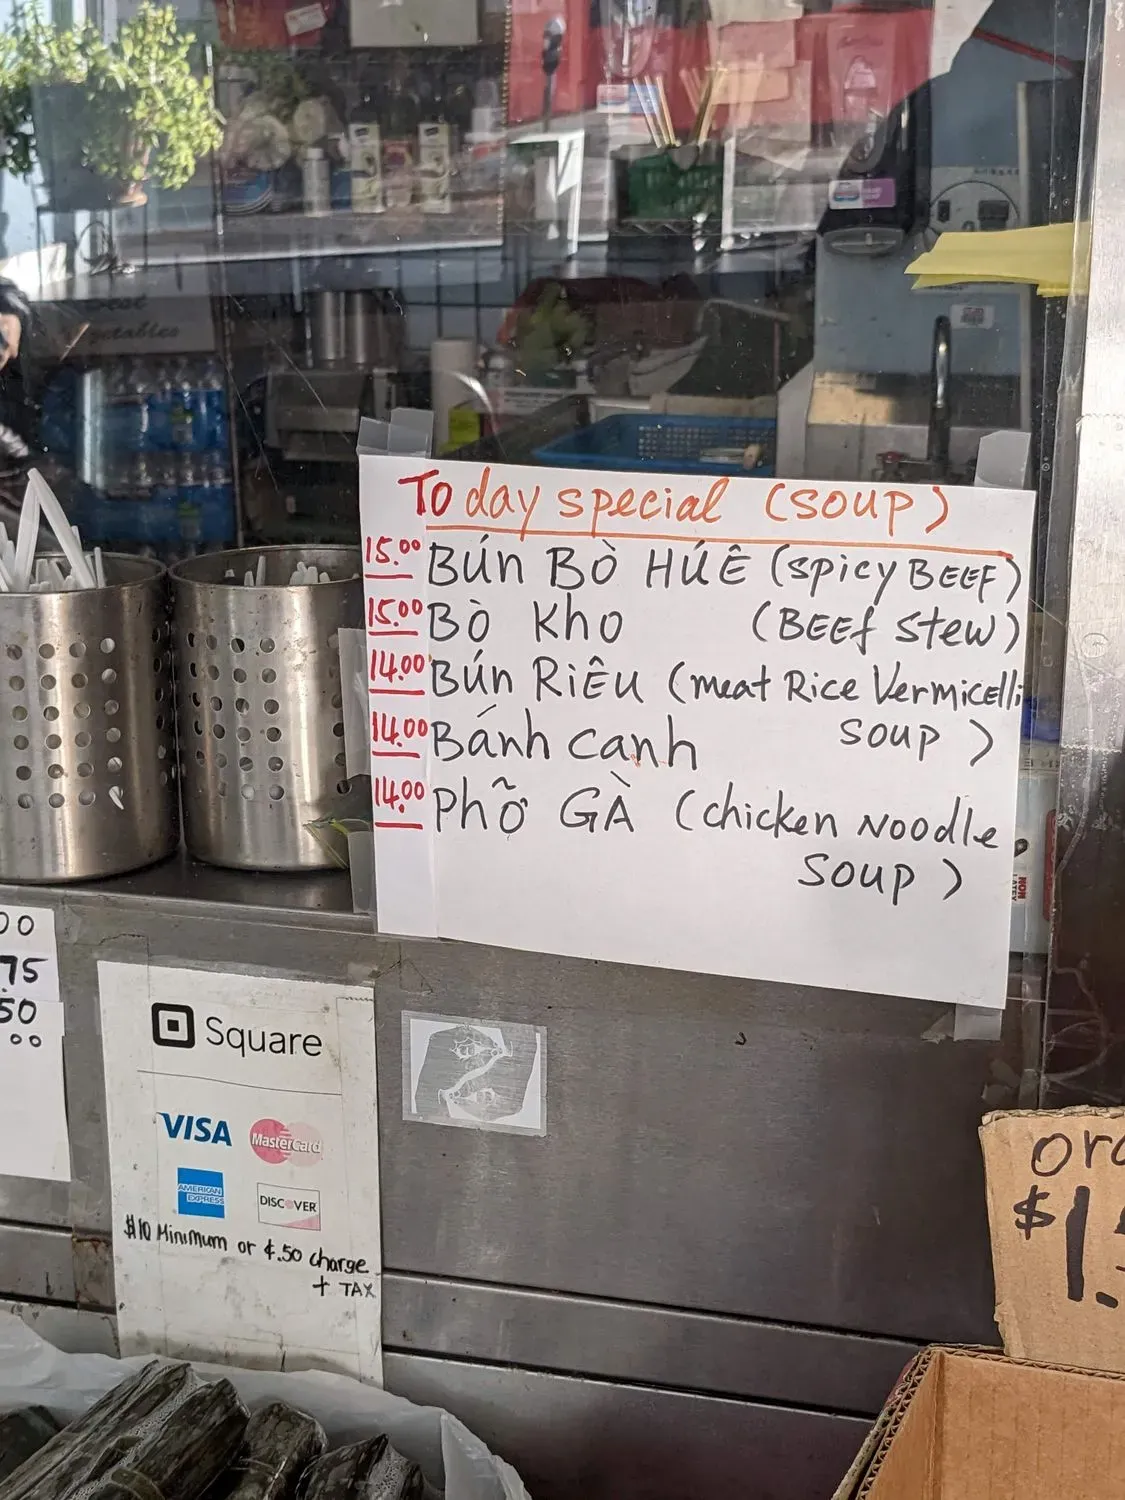 Today special (SOUP)
15.00 BÚN BÒ HÚÊ (spicy BEEF)
15.00 BÒ Kho (BEEf stew)
14.00 BÚN RIÊU (meat Rice Vermicelli
SOUP )
14.00 Bánh canh
14.00 PHỠ GÀ (chicken NOODLE
SOUP )
00
.75
50
.00
Square
VISA MasterCard
AMERICAN EXPRESS DISCOVER
$10 Minimum or ¢.50 charge
+ TAX
$1.